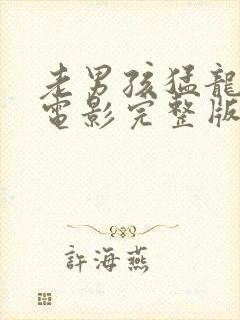 老男孩猛龍
電影完整版
許海燕